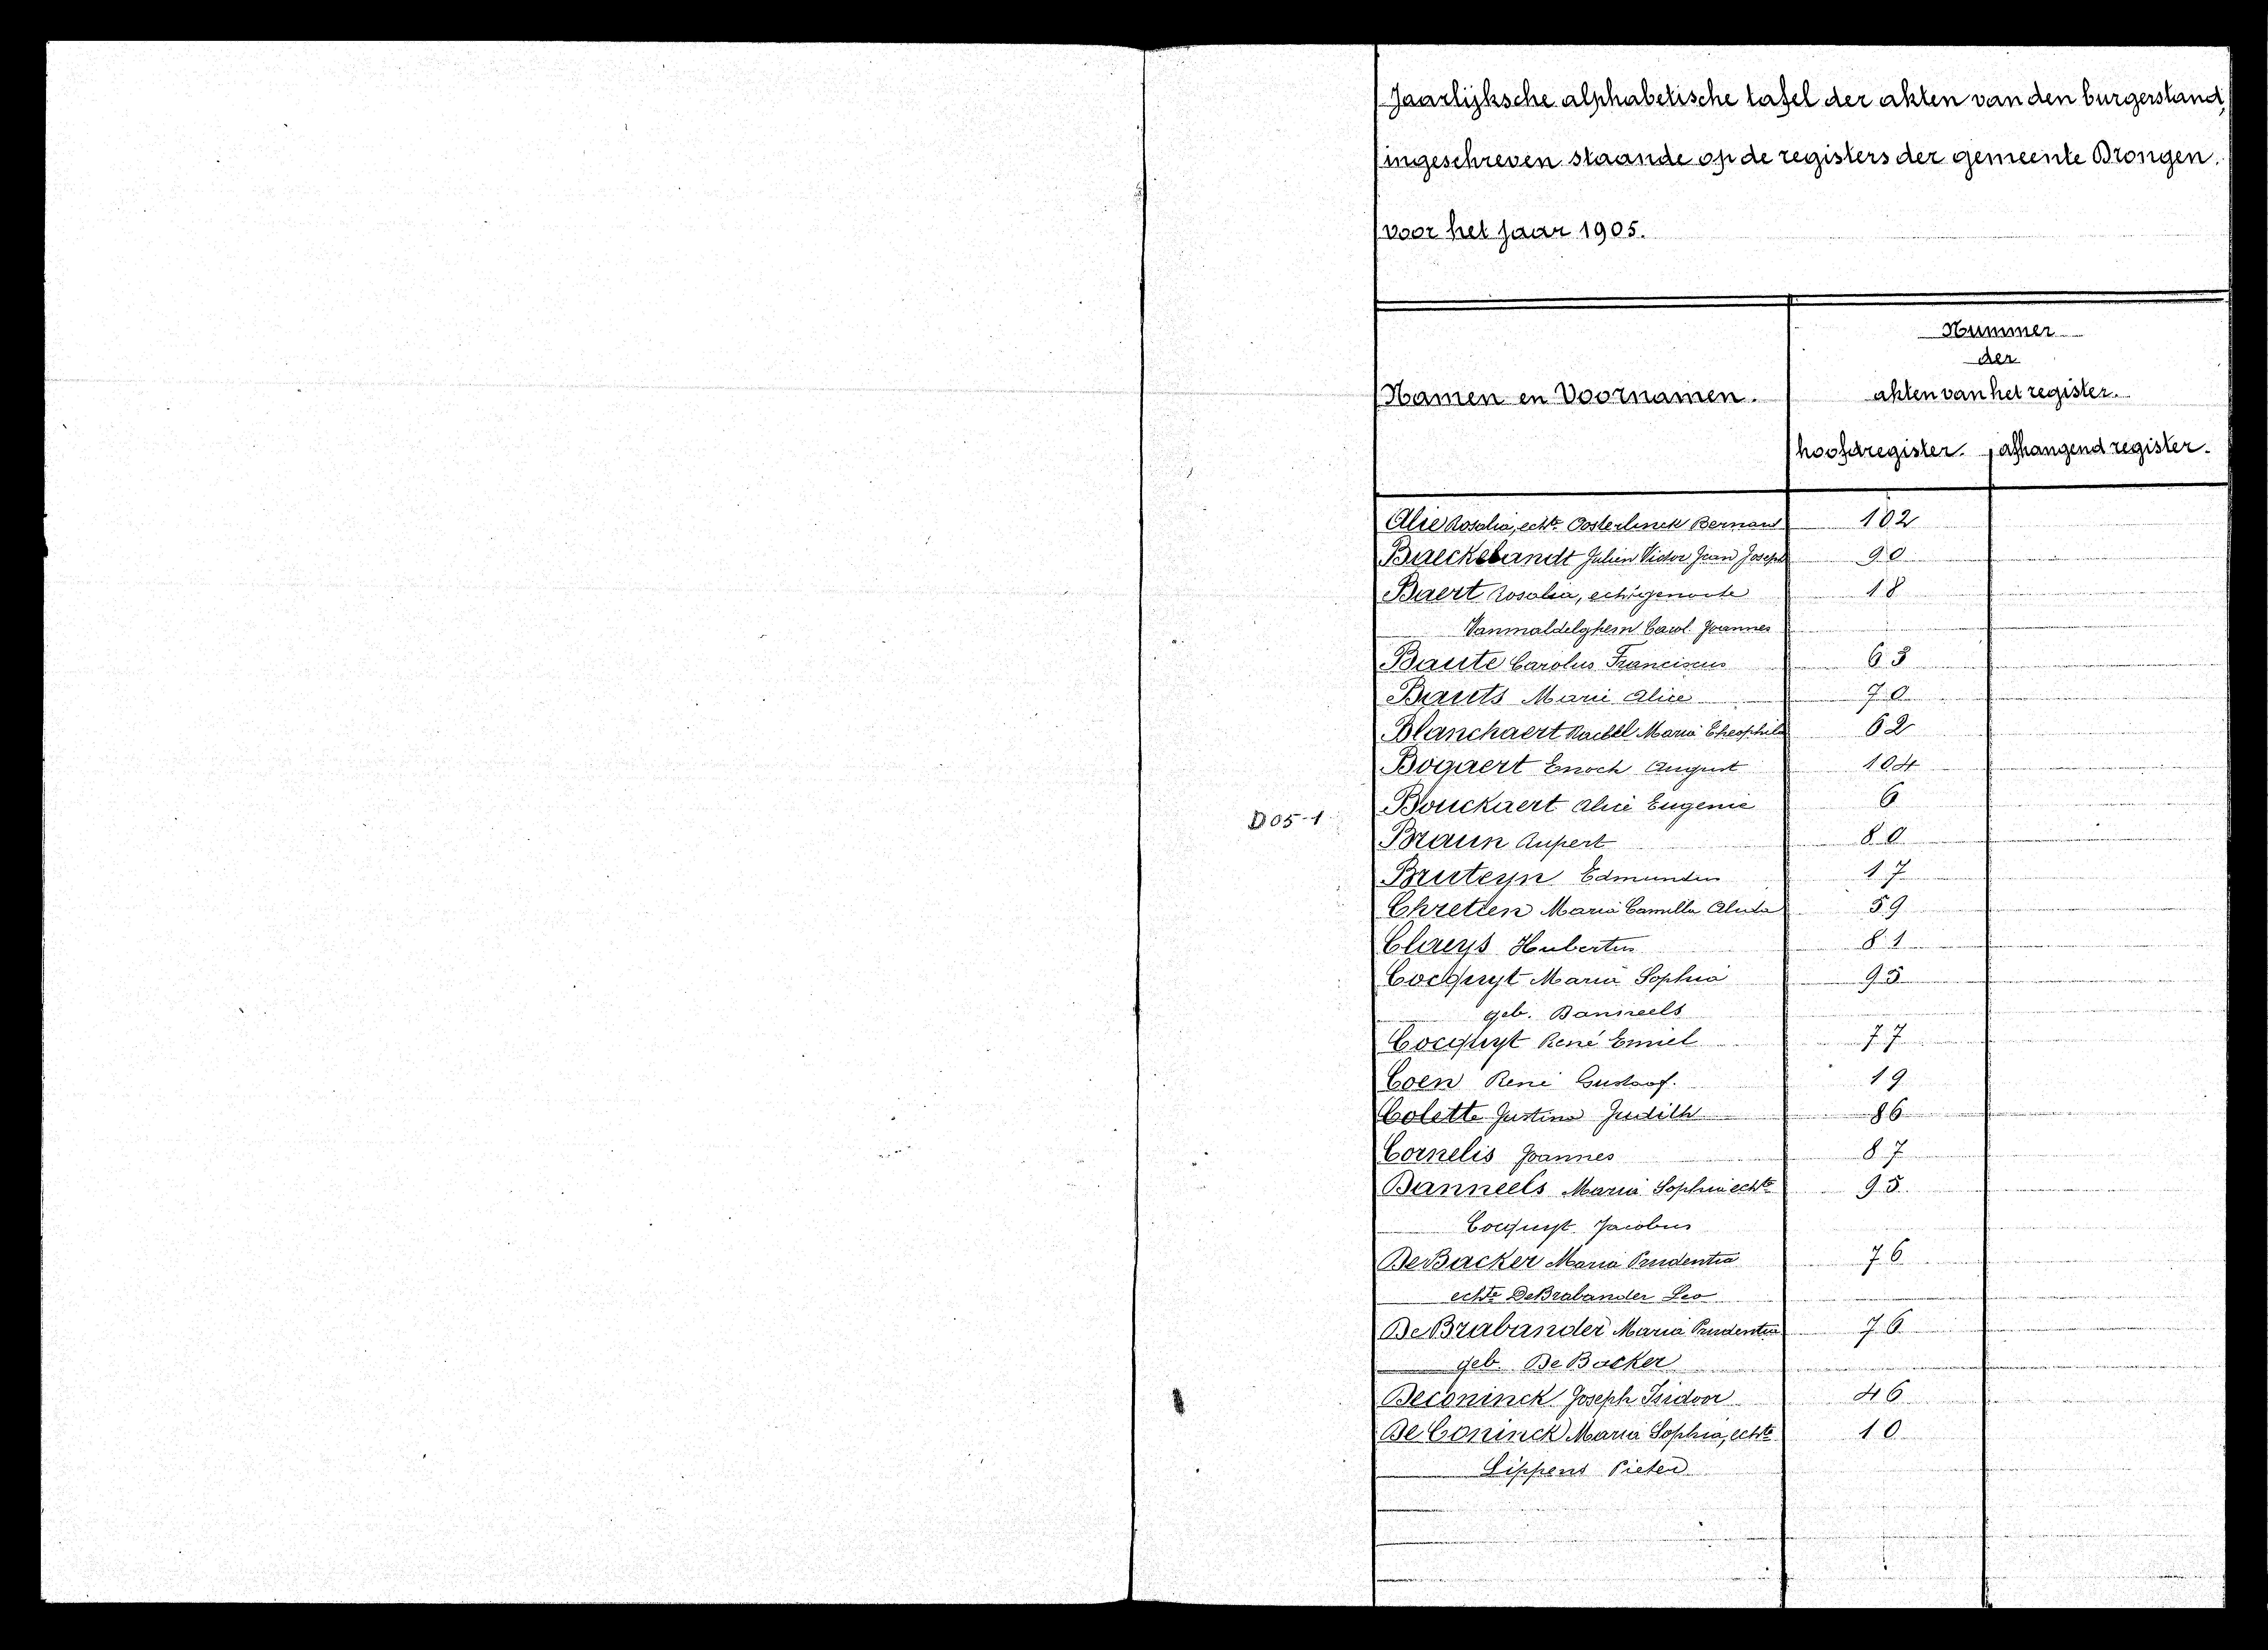 Jaarlijksche alphabetische tafel der akten van den burgerstand,
ingeschreven staande op de registers der gemeente Drongen.
voor het jaar 1905.
Nummer
der
Namen en Voornamen. akten van het register.
hoofdregister. afhangend register.
Alie Rosalia, echte Oosterlinck Bernard 102
Baeckelandt Julien Victor Jean Joseph 90
Baert Rosalia, echtgenoote 18
Vanmaldelghem Carol. Joannes
Baute Carolus Franciscus 63
Bauts Marie Alice 70
Blanchaert Rachel Maria Theophila 62
Bogaert Enoch August 104
Bouckaert Alice Eugenie 6
D05-1
Braun Rupert 80
Bruteyn Edmundus 17
Chretien Maria Camilla Alida 59
Claeys Hubertus 81
Cocquyt Maria Sophia 95
geb. Danneels
Cocquyt René Emiel 77
Coen René Gustaaf. 19
Colette Justina Judith 86
Cornelis Joannes 87
Danneels Maria Sophia echte 95
Cocquyt Jacobus
De Backer Maria Prudentia 76
echte DeBrabander Leo
De Brabander Maria Prudentia 76
geb. De Backer
Deconinck Joseph Isidoor 46
De Coninck Maria Sophia, echte 10
Lippens Pieter